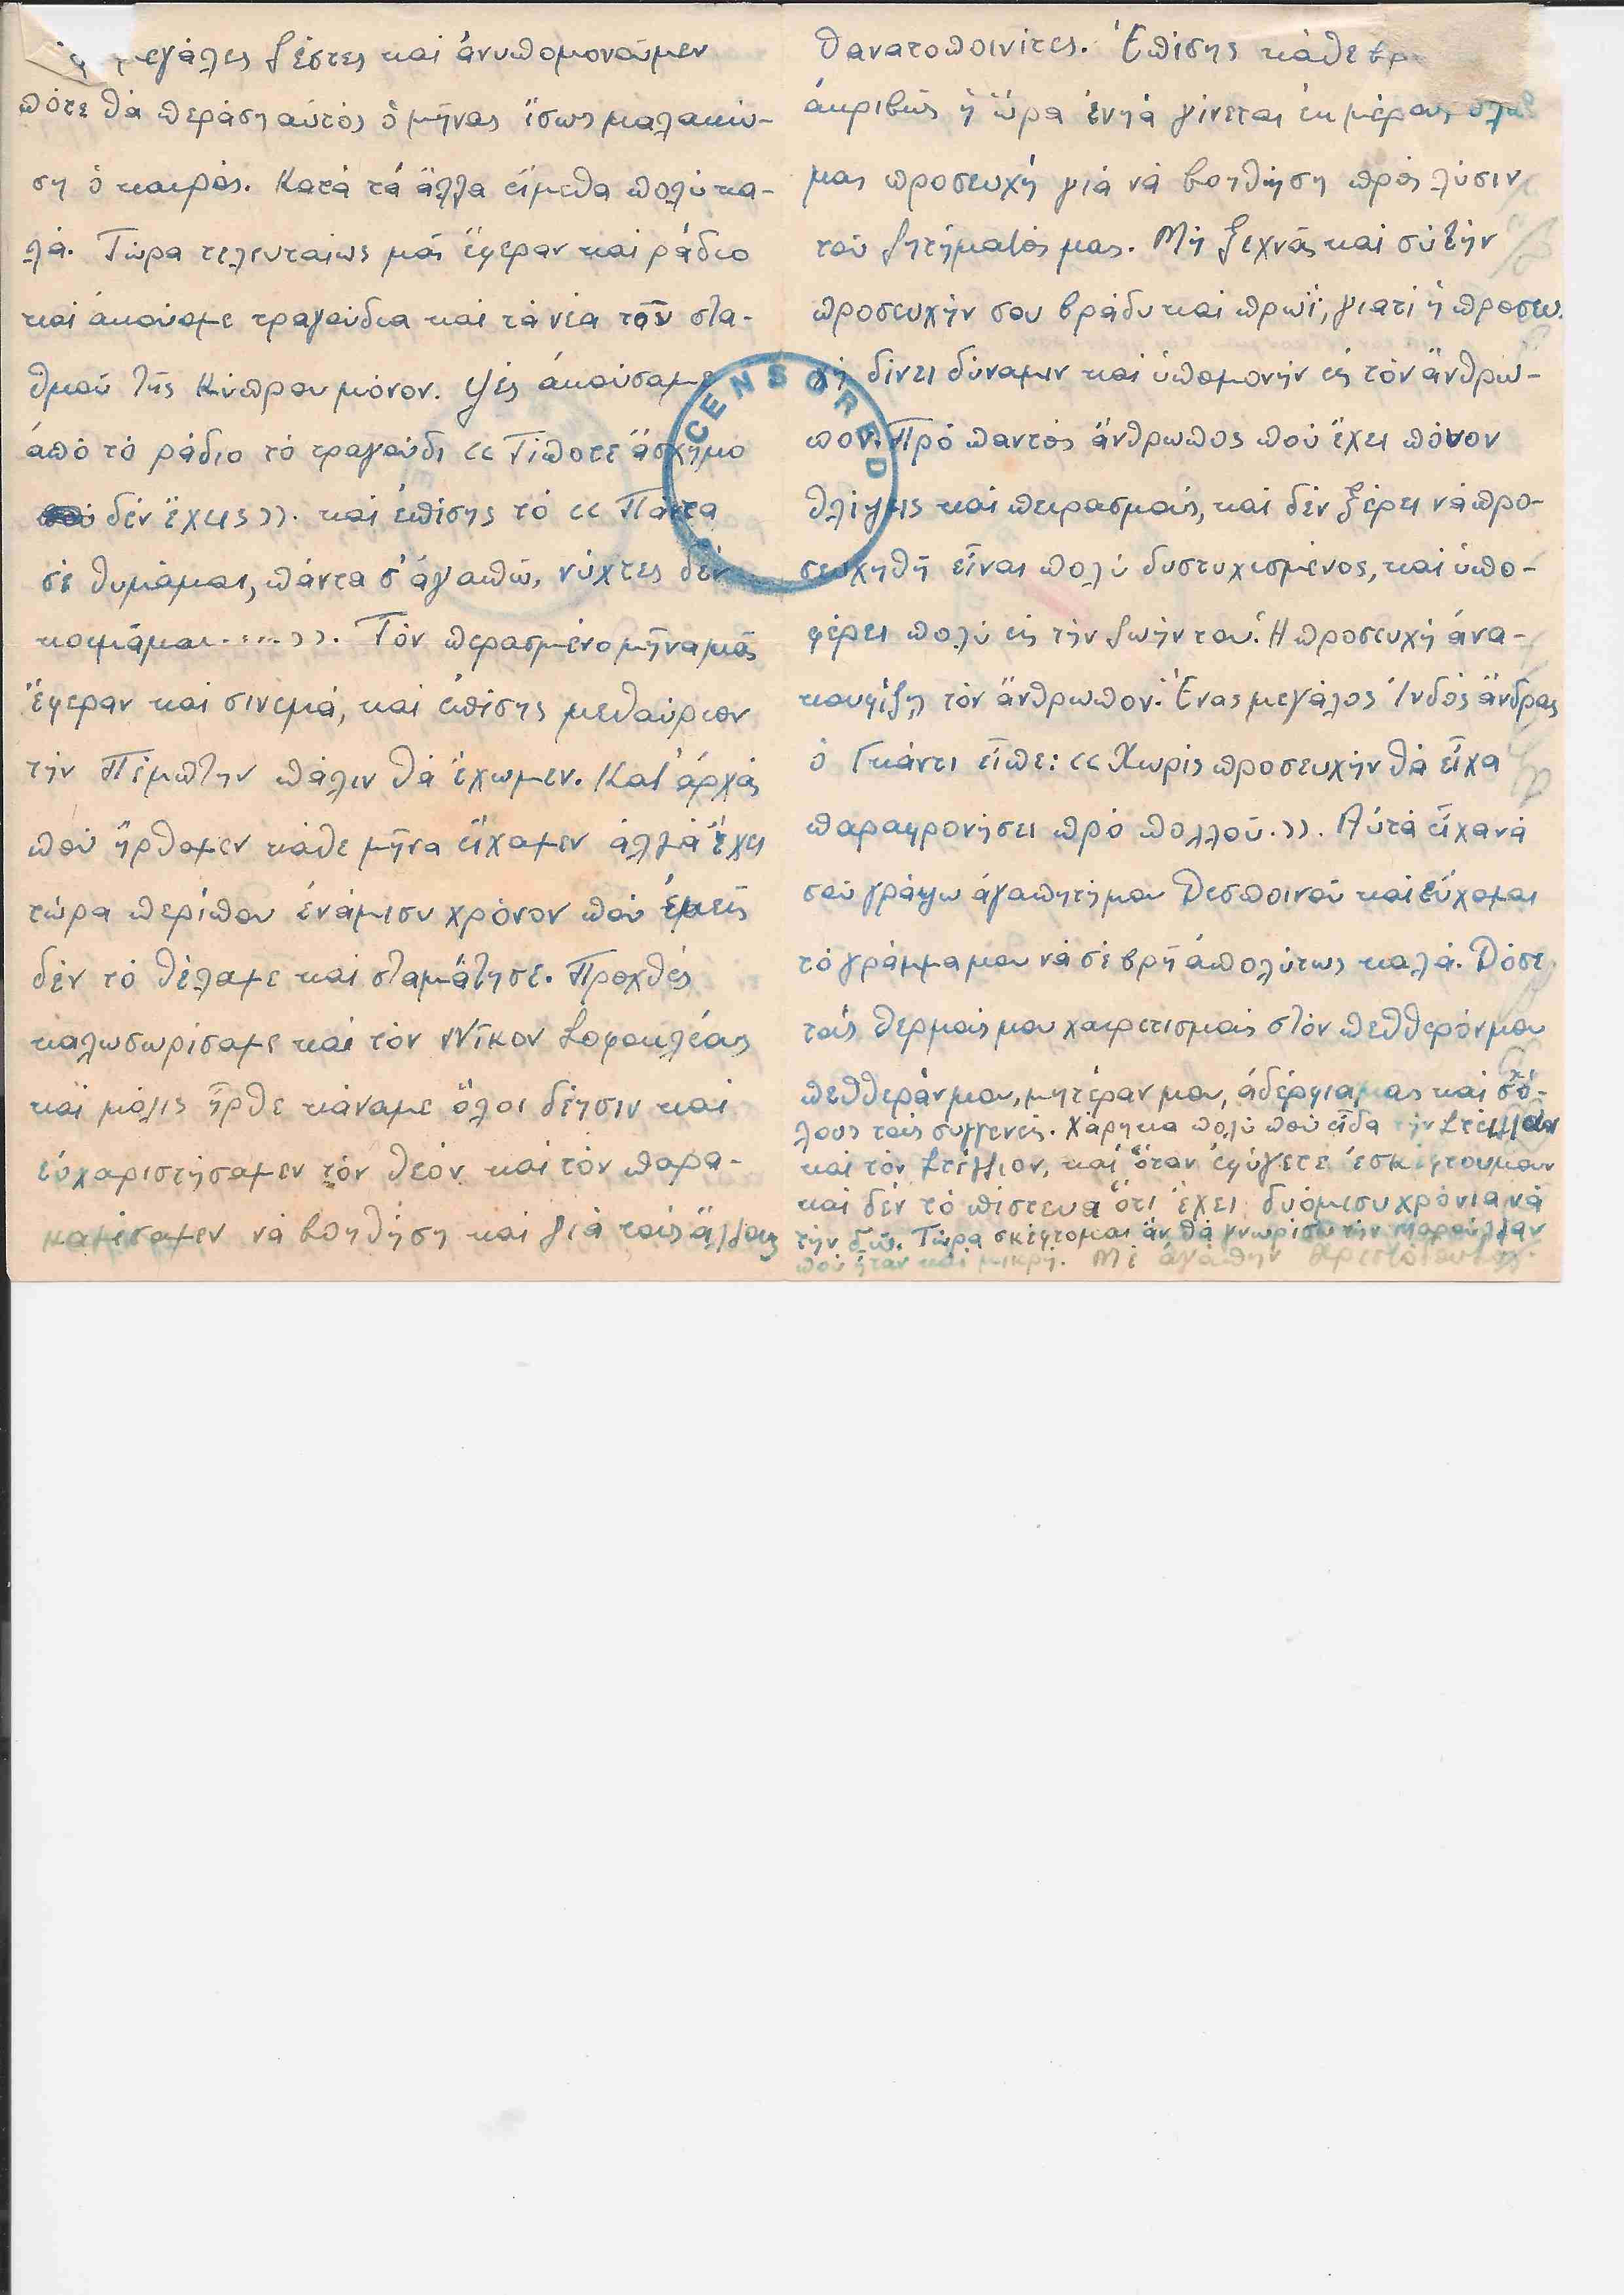 μεγάλες ζέστες καί ἀνυπομονοῦμεν
πότε θά περάση αὐτός ὁ μῆνας ἴσως μαλακώ-
ση ὁ καιρός. Κατά τά ἄλλα εἴμεθα πολύ κα-
λά. Τώρα τελευταίως μᾶς ἔφεραν καί ράδιο
καί ἀκούομε τραγούδια καί τά νέα τοῦ στα-
θμοῦ τῆς Κύπρου μόνον. Ψές ἀκούσαμε
ἀπό τό ράδιο τό τραγούδι << Τίποτε ἄσχημο
δέν ἔχεις >>. καί ἐπίσης τό << Πάντα
σέ θυμᾶμαι, πάντα σ' ἀγαπῶ, νύχτες δέν
κοιμᾶμαι..... >>. Τόν περασμένο μῆνα μᾶς
ἔφεραν καί σινεμά, καί ἐπίσης μεθαύριον
τήν Πέμπτην πάλιν θά ἔχωμεν. Κατ' ἀρχάς
πού ἤρθαμεν κάθε μῆνα εἴχαμεν ἀλλά ἔχει
τώρα περίπου ἑνάμισυ χρόνον πού ἐμεῖς
δέν τό θέλαμε καί σταμάτησε. Προχθές
καλωσωρίσαμε καί τόν Νῖκον Σοφοκλέους
καί μόλις ἦρθε κάναμε ὅλοι δέησιν καί
εὐχαριστήσαμεν τόν Θεόν καί τόν παρα-
καλέσαμεν νά βοηθήση καί γιά τούς ἄλλους
θανατοποινίτες. Ἐπίσης κάθε
ἀκριβῶς ἡ ὥρα ἐνηά γίνεται ἐκ μέρους
μας προσευχή γιά νά βοηθήση πρός λύσιν
τοῦ ζητήματός μας. Μή ξεχνᾶς καί σύ τήν
προσευχήν σου βράδυ καί πρωΐ, γιατί ἡ προσευ-
χή δίνει δύναμιν καί ὑπομονήν εἰς τόν ἄνθρω-
πον. Πρό παντός ἄνθρωπος πού ἔχει πόνον
θλίψεις καί πειρασμούς, καί δέν ξέρει νά προ-
σευχηθῆ εἶναι πολύ δυστυχισμένος, καί ὑπο-
φέρει πολύ εἰς τήν ζωήν του. Ἡ προσευχή ἀνα-
κουφίζη τόν ἄνθρωπον. Ἕνας μεγάλος Ἰνδός ἄνδρας
ὁ Γκάντι εἶπε: << Χωρίς προσευχήν θά εἶχα
παραφρονήσει πρό πολλοῦ. >>. Αὐτά εἶχα νά
σοῦ γράψω ἀγαπητή μου Δεσποινοῦ καί εὔχομαι
τό γράμμα μου νά σέ βρῆ ἀπολύτως καλά. Δόσε
τούς θερμούς μου χαιρετισμούς στόν πεθθερόν μου
πεθθεράν μου, μητέραν μου, ἀδέρφια μας καί σ' ὅ-
λους τούς συγγενεῖς. Χάρηκα πολύ πού εἶδα τήν Στέλλαν
καί τόν Στέλλιον, καί ὅταν ἐφύγετε ἐσκέφτουμουν
καί δέν τό πίστευα ὅτι ἔχει δυόμισυ χρόνια νά
τήν δῶ. Τώρα σκέφτομαι ἄν θά γνωρίσω τήν Μαρούλλαν
πού ἦταν καί μικρή. Μέ ἀγάπην
CENSORED